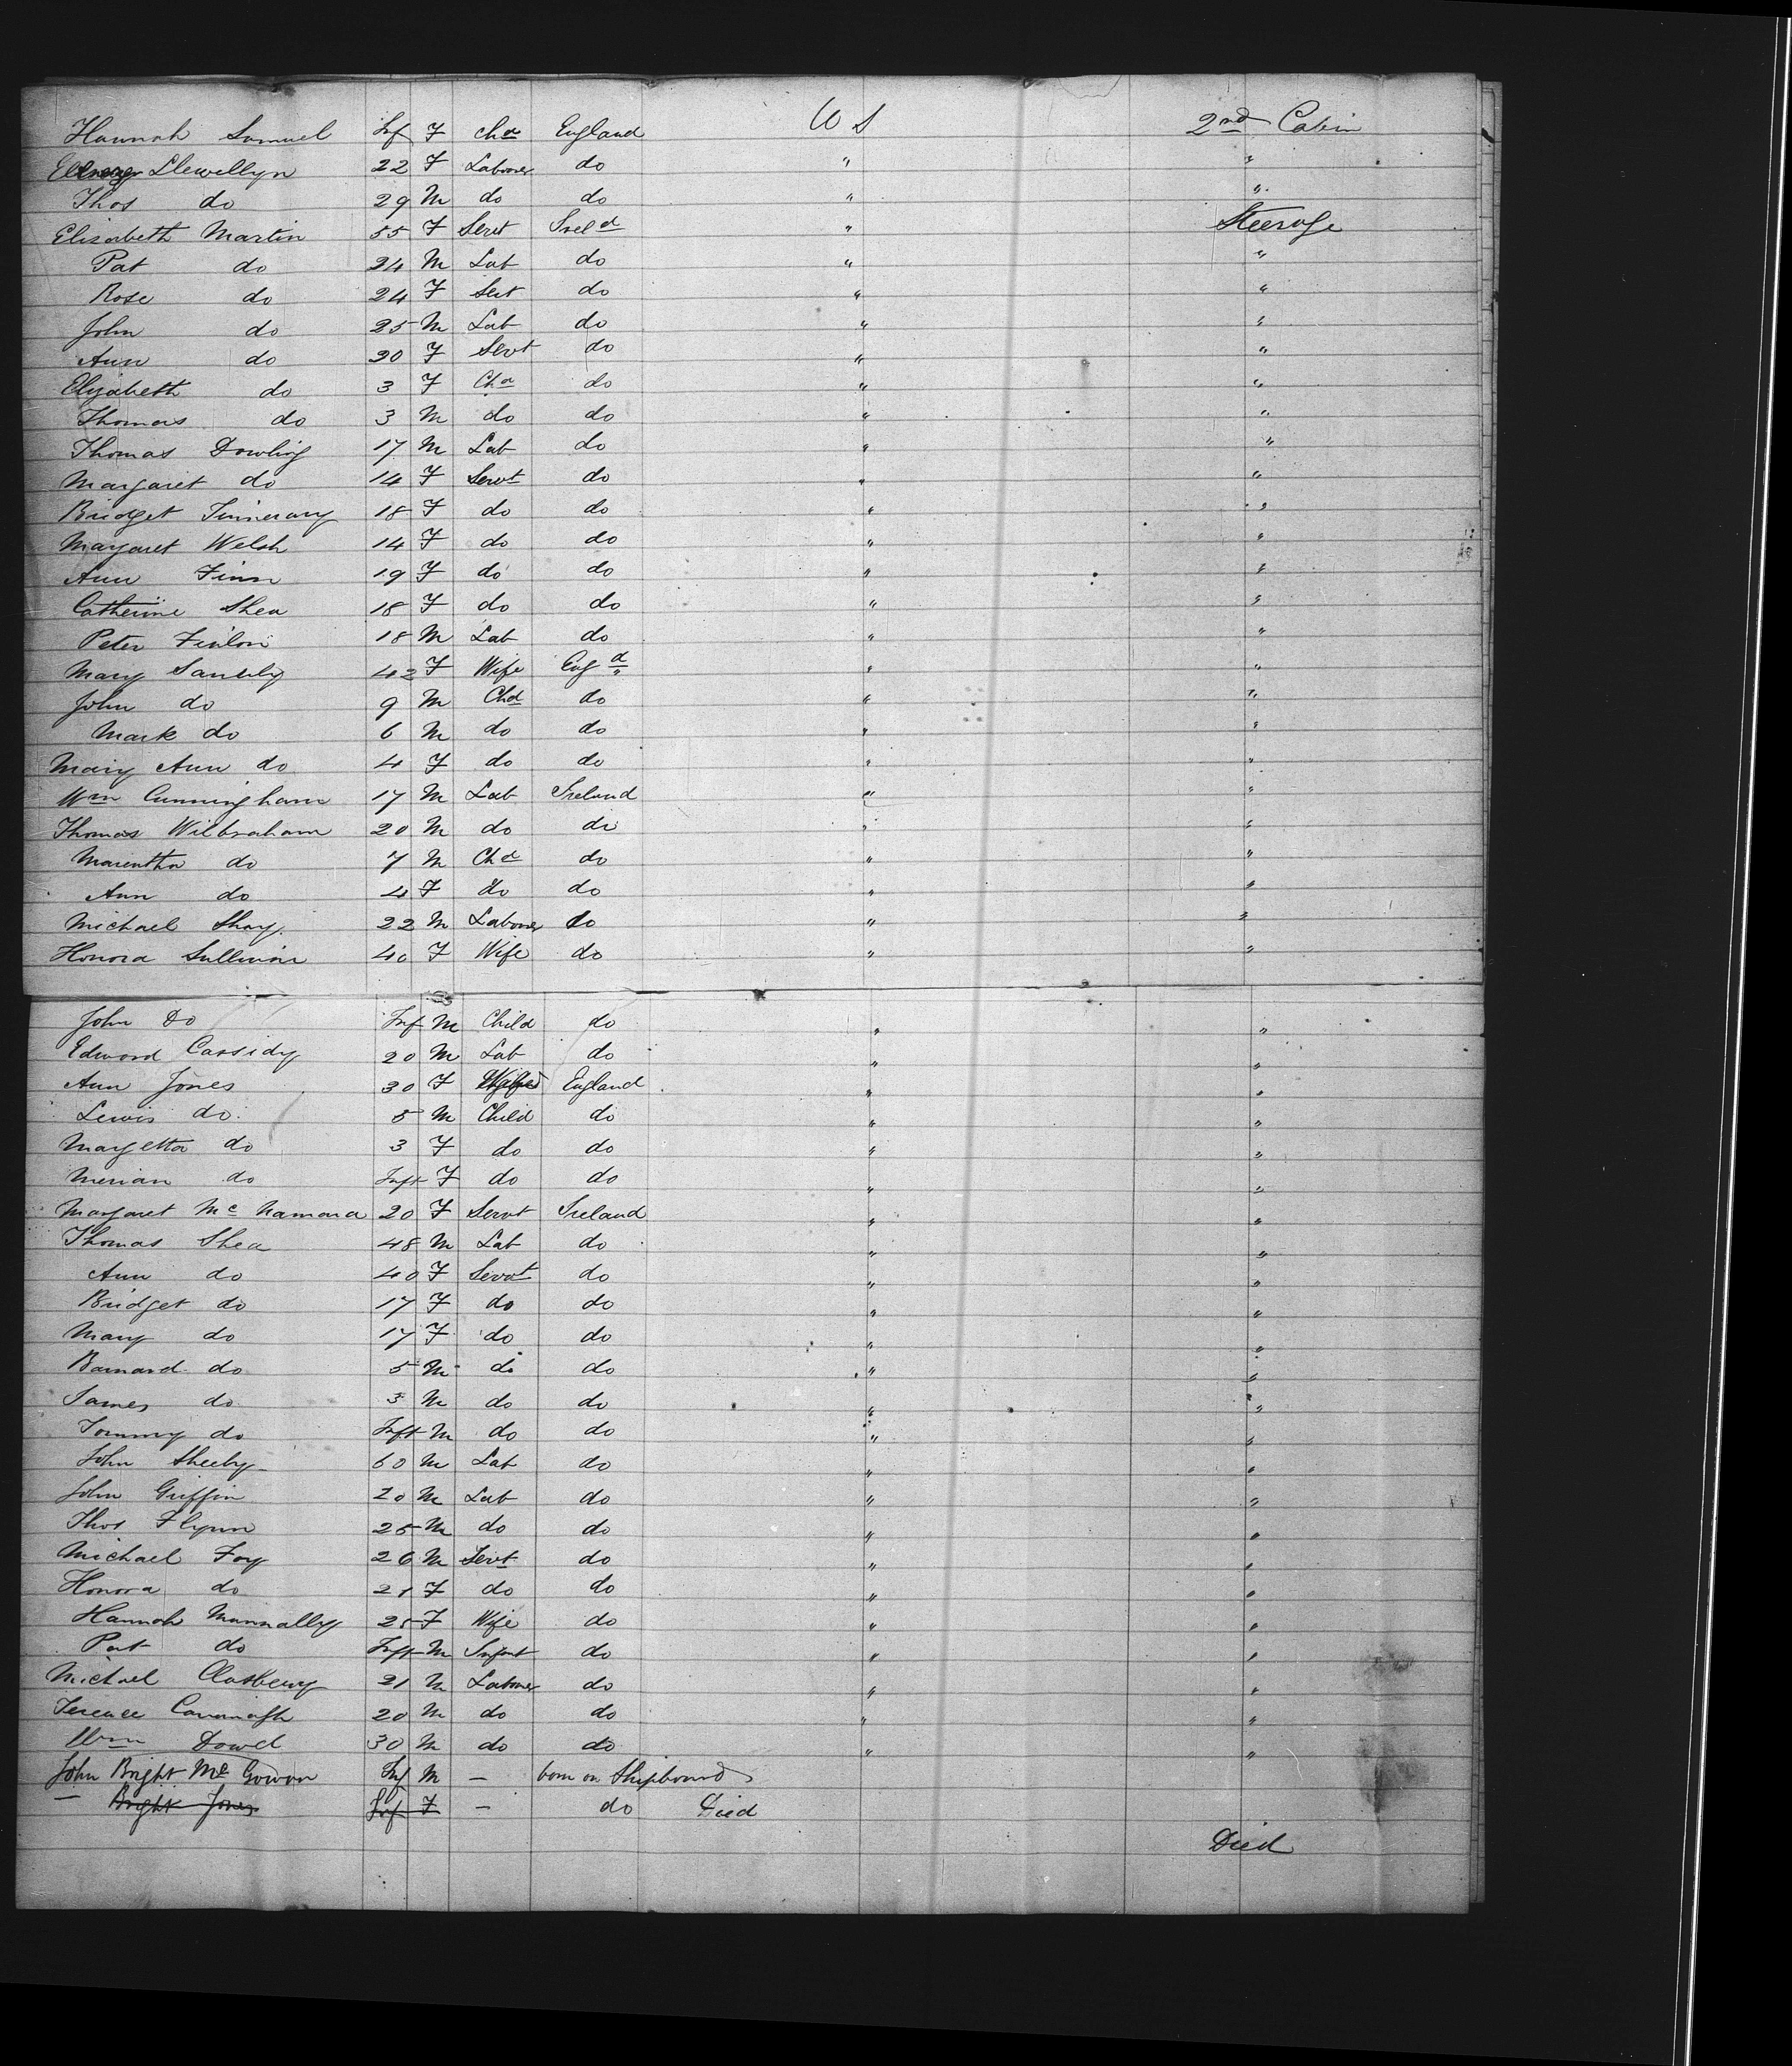 Hannah Samuel Inf F Chd England U S 2nd Cabin
Llewellyn 22 F Laborer do " "
Thos do 29 M do do " "
Elisabeth Martin 55 F Servt Ireld " Steerage
Pat do 24 M Lab do " "
Rose do 24 F Sert do " "
John do 25 M Lab do " "
Ann do 20 F Servt do " "
Elizabeth do 3 F Chd do " "
Thomas do 3 M do do " "
Thomas Dowling 17 M Lab do " "
Margaret do 14 F Servt do " "
Bridget Finnerary 18 F do do " "
Margaret Welsh 14 F do do " "
Ann Finn 19 F do do " "
Catherine Shea 18 F do do " "
Peter Finlon 18 M Lab do " "
Mary 42 F Wife Engd " "
John do 9 M Chd do " "
Mark do 6 M do do " "
Mary Ann do 4 F do do " "
Wm Cunningham 17 M Lab Ireland " "
Thomas Wilbraham 20 M do do " "
Marentha do 7 M Chd do " "
Ann do 4 F do do " "
Michael Shay. 22 M Laborer do " "
Honora Sullivan 40 F Wife do " "
John Do Inf M Child do " "
Edward Cassidy 20 M Lab do " "
Ann Jones 30 F England " "
Lewis do 5 M Child do " "
Margetta do 3 F do do " "
Merian do Inft F do do " "
Margaret Mc Namara 20 F Servt Ireland " "
Thomas Shea 48 M Lab do " "
Ann do 40 F Servt do " "
Bridget do 17 F do do " "
Mary do 17 F do do " "
Barnard do 5 M do do " "
James do 3 M do do " "
Tommy do Inft M do do " "
John Sheehy 60 M Lab do " "
John Griffin 20 M Lab do " "
Thos Flynn 25 M do do " "
Michael Foy 26 M Servt do " "
Honora do 21 F do do " "
Hannah Munnally 25 F Wife do " "
Pat do Inft M Infant do " "
Michael 21 M Laborer do " "
Terence Cavanagh 20 M do do " "
Wm Dowd 30 M do do " "
John Bright Mc Gowan Inf M — born on Shipboard
— Bright Jones Inf F — do Died
Died